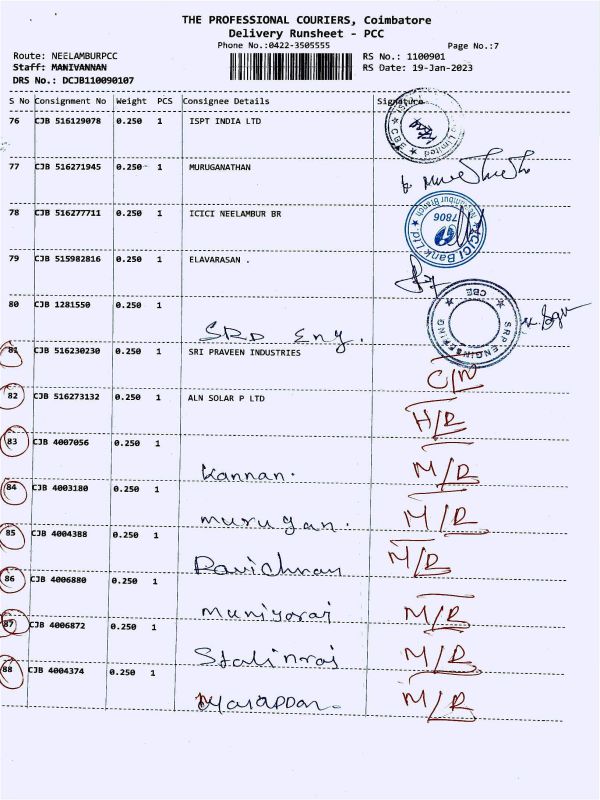 THE PROFESSIONAL COURIERS, Coimbatore
Delivery Runsheet - PCC
Phone No.:0422-3505555 Page No.:7
Route: NEELAMBURPCC RS No.: 1100901
Staff: MANIVANNAN RS Date: 19-Jan-2023
DRS No.: DCJB110090107
S No Consignment No Weight PCS Consignee Details Signature
76 CJB 516129078 0.250 1 ISPT INDIA LTD
77 CJB 516271945 0.250 1 MURUGANATHAN
78 CJB 516277711 0.250 1 ICICI NEELAMBUR BR
ICICI Bank Ltd. Neelambur Branch 7806
79 CJB 515982816 0.250 1 ELAVARASAN .
80 CJB 1281550 0.250 1 SRD Eng.
SRP ENGINEERING CBE
81 CJB 516230230 0.250 1 SRI PRAVEEN INDUSTRIES C/R
82 CJB 516273132 0.250 1 ALN SOLAR P LTD H/R
83 CJB 4007056 0.250 1 Kannan. M/R
84 CJB 4003180 0.250 1 murugan. M/R
85 CJB 4004388 0.250 1 M/R
86 CJB 4006880 0.250 1 muniyaraj M/R
87 CJB 4006872 0.250 1 Stalinraj M/R
88 CJB 4004374 0.250 1 M/R